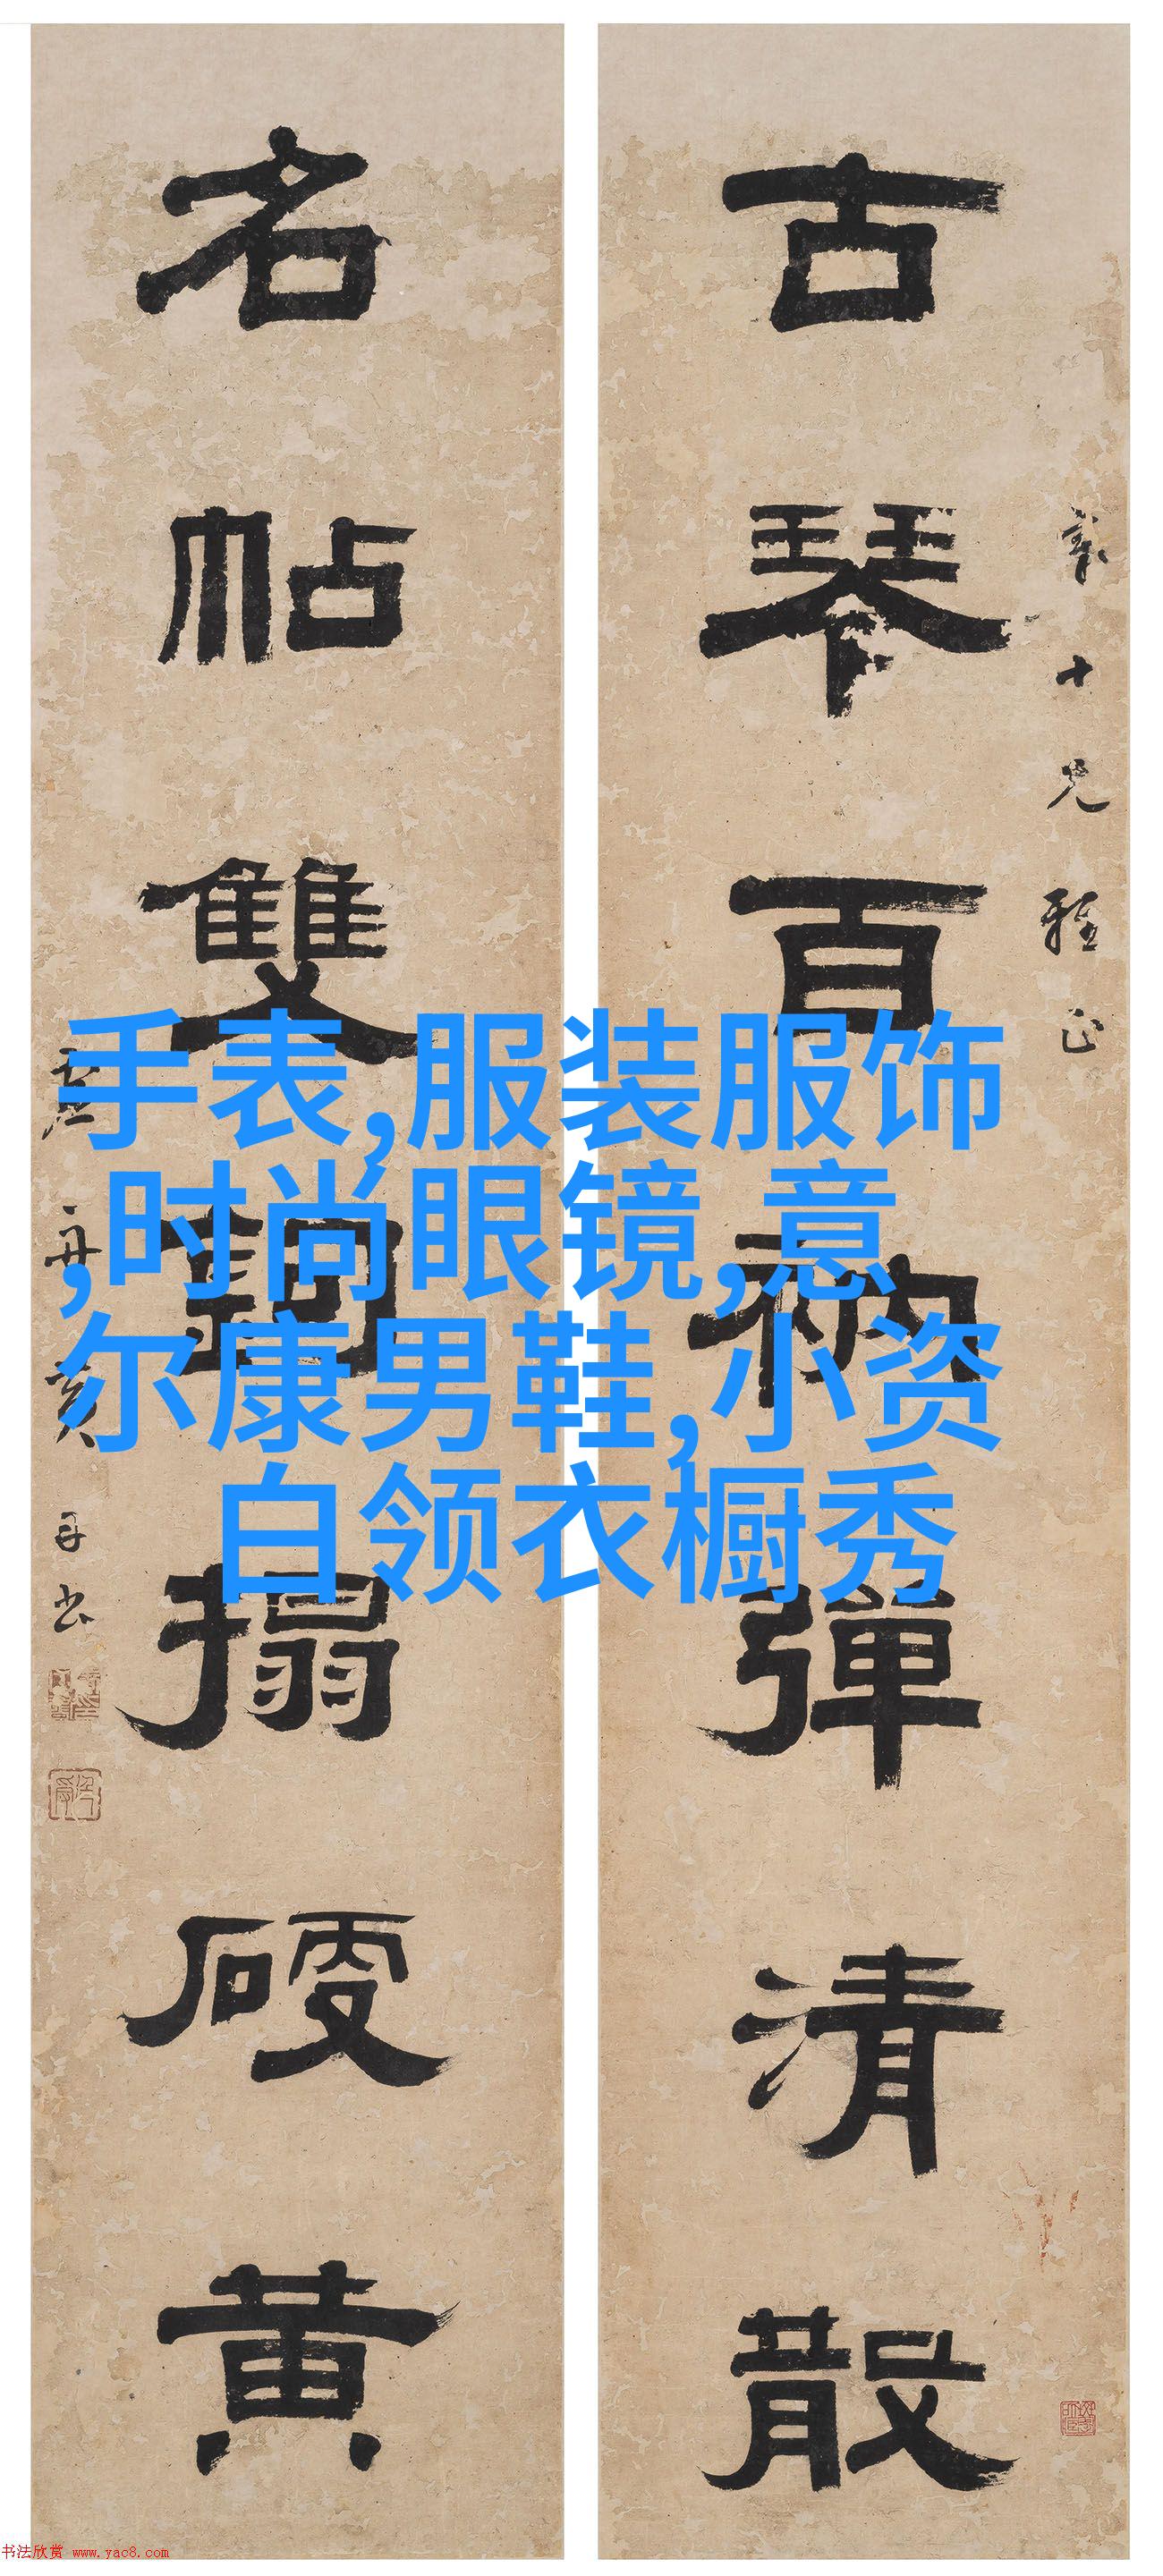 古琴百衲彈清散
名帖雙鉤搨硬黃
十兄雅正
手表,服装服饰
,时尚眼镜,意
尔康男鞋,小资
白领衣橱秀
书法欣赏 www.yac8.com